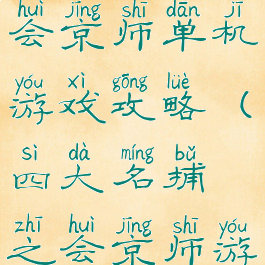 huì jīng shī dān jī
会京师单机
yóu xì gōng lüè
游戏攻略（
sì dà míng bǔ
四大名捕
zhī huì jīng shī yóu
之会京师游